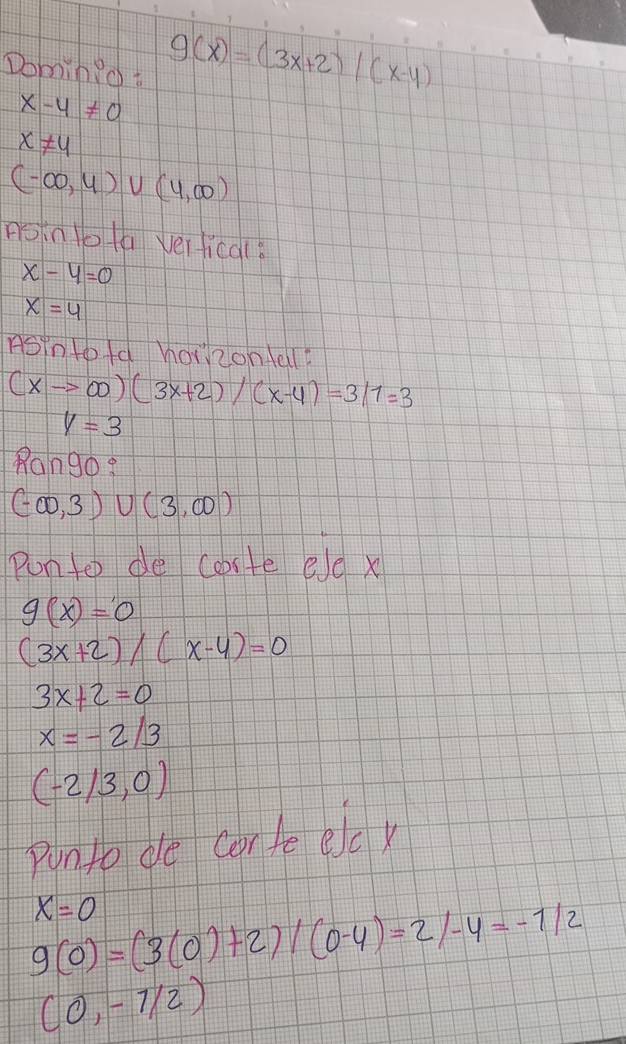 g(x)=(3x+2)/(x-4)
Dominio:
x-4≠0
x≠4
(-∞,4)∪(4,∞)
Asintota vertical:
x-4=0
x=4
Asintota horizontal:
(x→∞)(3x+2)/(x-4)=3/1=3
y=3
Rango:
(-∞,3)∪(3,∞)
Punto de corte eje x
g(x)=0
(3x+2)/(x-4)=0
3x+2=0
x=-2/3
(-2/3,0)
Punto de corte eje y
x=0
g(0)=(3(0)+2)/(0-4)=2/-4=-1/2
(0,-1/2)